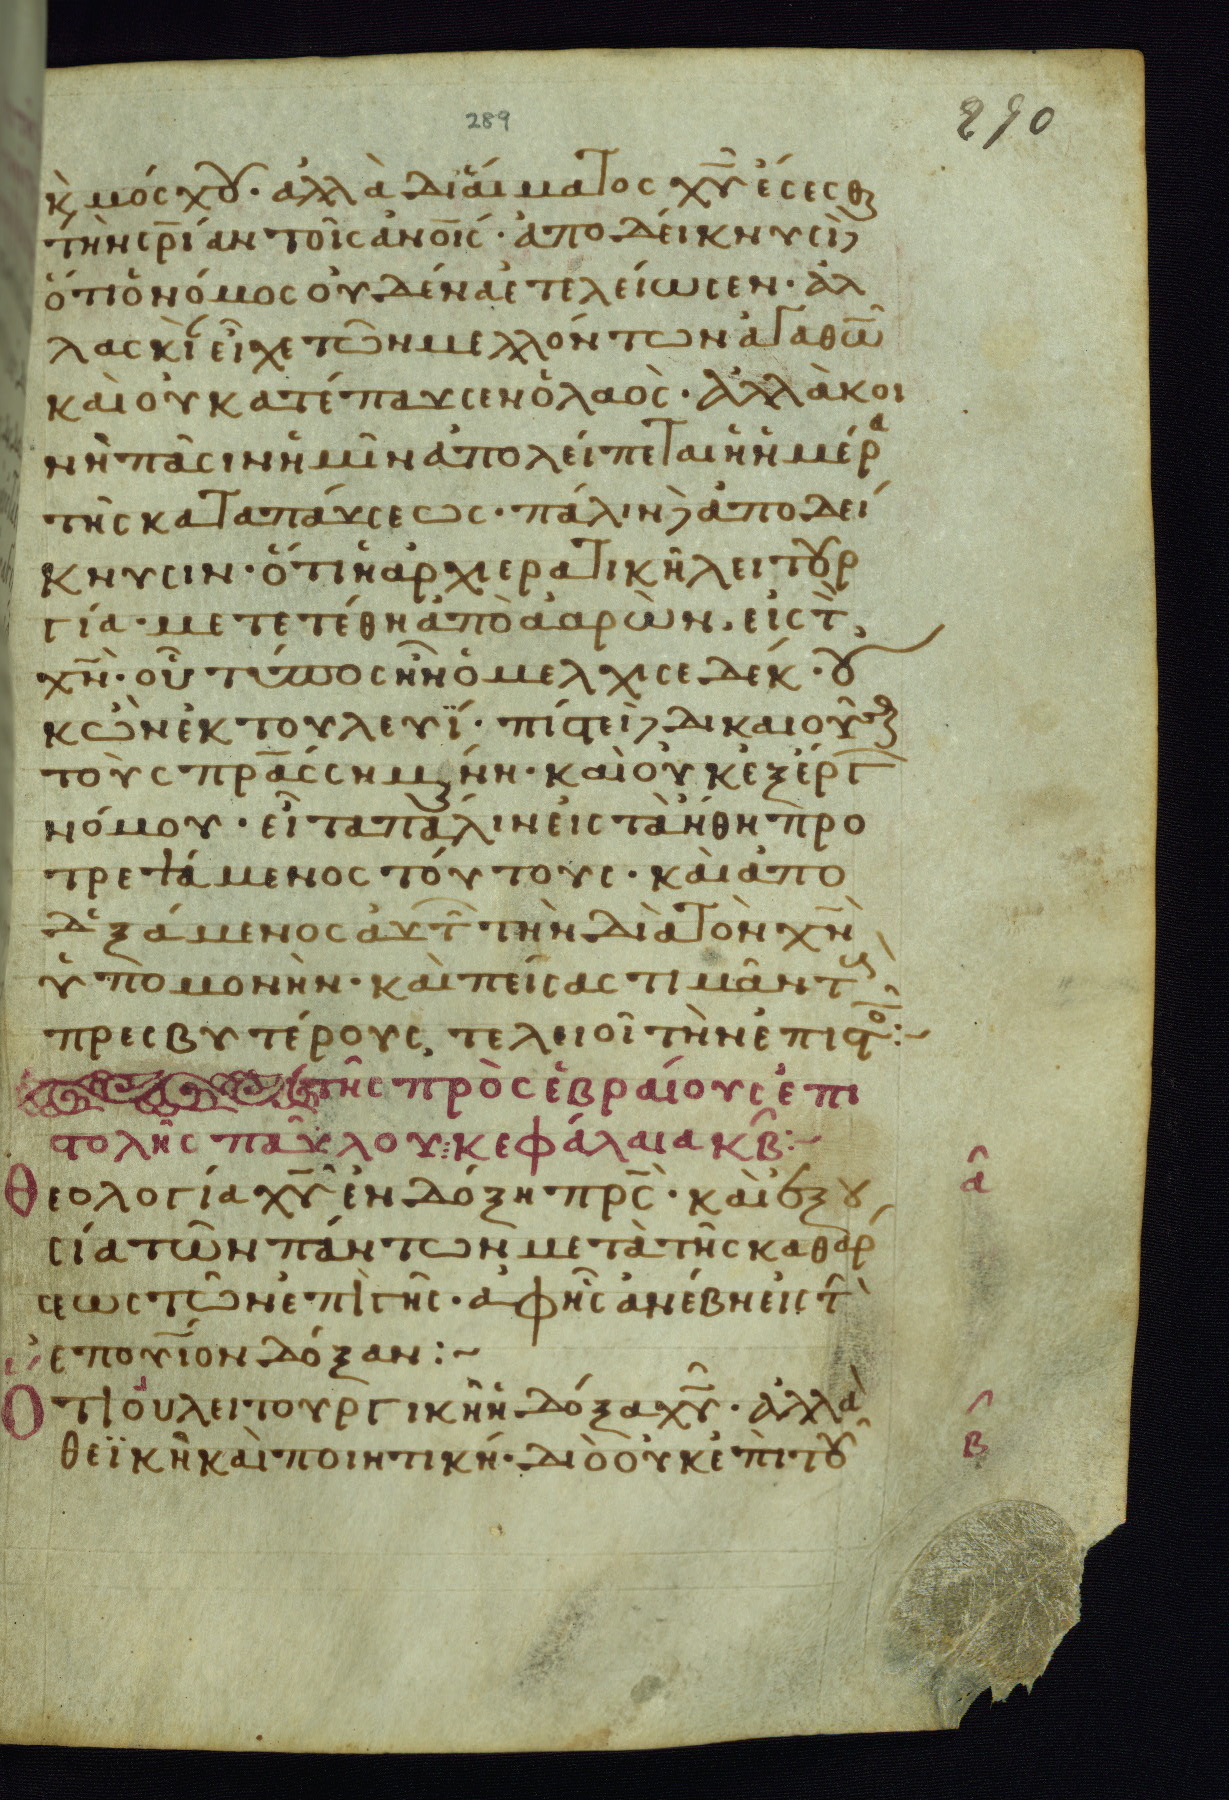 289
290
κ̀ μόσχου· ἀλλὰ διαἵματος χῡ ἔσεσθαι
τὴν σρ̄ίαν τοῖς ἀνοῑς· ἀποδείκνυσι
ὅτι ὁ νόμος οὐδένα ἐτελείωσεν· ἀλ
λα σκϊὰ εἶχε τῶν μελλόντων ἀγαθω̄
καὶ οὐ κατέπαυσεν ὁ λαὸς· ἀλλὰ κοι
νὴ πᾶσιν ἡμῖν ἀπολείπεται ἡ ἡμέρα
τῆς καταπάυσεως· πάλιν ἀποδεί
κνυσιν· ὅτι ἡ αρχιερατικὴ λειτουρ
γία· μετετέθη ἀπὸ ἀαρὼν, εἰς τ̀
χν̄· οὗ τύπος ἦν ὁ μελχισεδέκ· οὐ
κ ὢν ἐκ του λευϊ· πίστει δικαιοῦσθαι
τοὺς πρ̄ας ἐσήμανεν· καὶ οὐκ ἐξ έργ
νόμου· εἶτα πάλιν εἰς τὰ ἤθη προ
τρεψάμενος τούτους· καὶ ἀπο
δεξάμενος αὐτ τὴν διὰ τὸν χν̄
ὑπομονὴν· καὶ πείσας τιμᾶν τους
πρεσβυτέρους, τελειοῖ τὴν ἐπιστο:~
τῆς πρὸς ἑβραίους ἐπι
στολῆς παύλου: κεφάλαια κβ:~
Θεολογία χῡ ἐν δόξη πρς̄· καὶ ἐξου
σία τῶν πάντων μετὰ τῆς καθάρ
σεως τῶν ἐπὶ γῆς· ἀφ ἧς ἀνέβη εἰς τ̀
ἐπουῑον δόξαν:~
α
Ὅτι οὐ λειτουργικὴ ἡ δόξα χῡ· ἀλλὰ
θεϊκὴ καὶ ποιητική· διὸ οὐκ ἐπὶ του
β